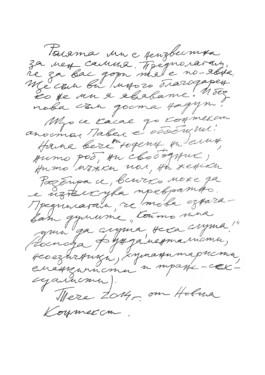 Ролята ми е неизвестна
за мен самия. Предполагам,
че за вас дори тя е по-явна.
Ще съм ви много благодарен
ако не ми я явявате. И без
това съм доста надут!
Що се касае до контекст
апостол Павел е обобщил:
Няма вече юдеин ни елин,
нито роб, ни свободник,
нито мъжки пол, ни женски.
Разбира се, всичко може да
се изтълкува превратно.
Предполагам, че това означа-
ват думите „Който има
уши да слуша нека слуша!"
(господа фундаменталисти,
неоезичници, хуманитаристи,
сменхичписти и транс-сек-
суалисти).
Тече 2014, от Новия
Контекст.